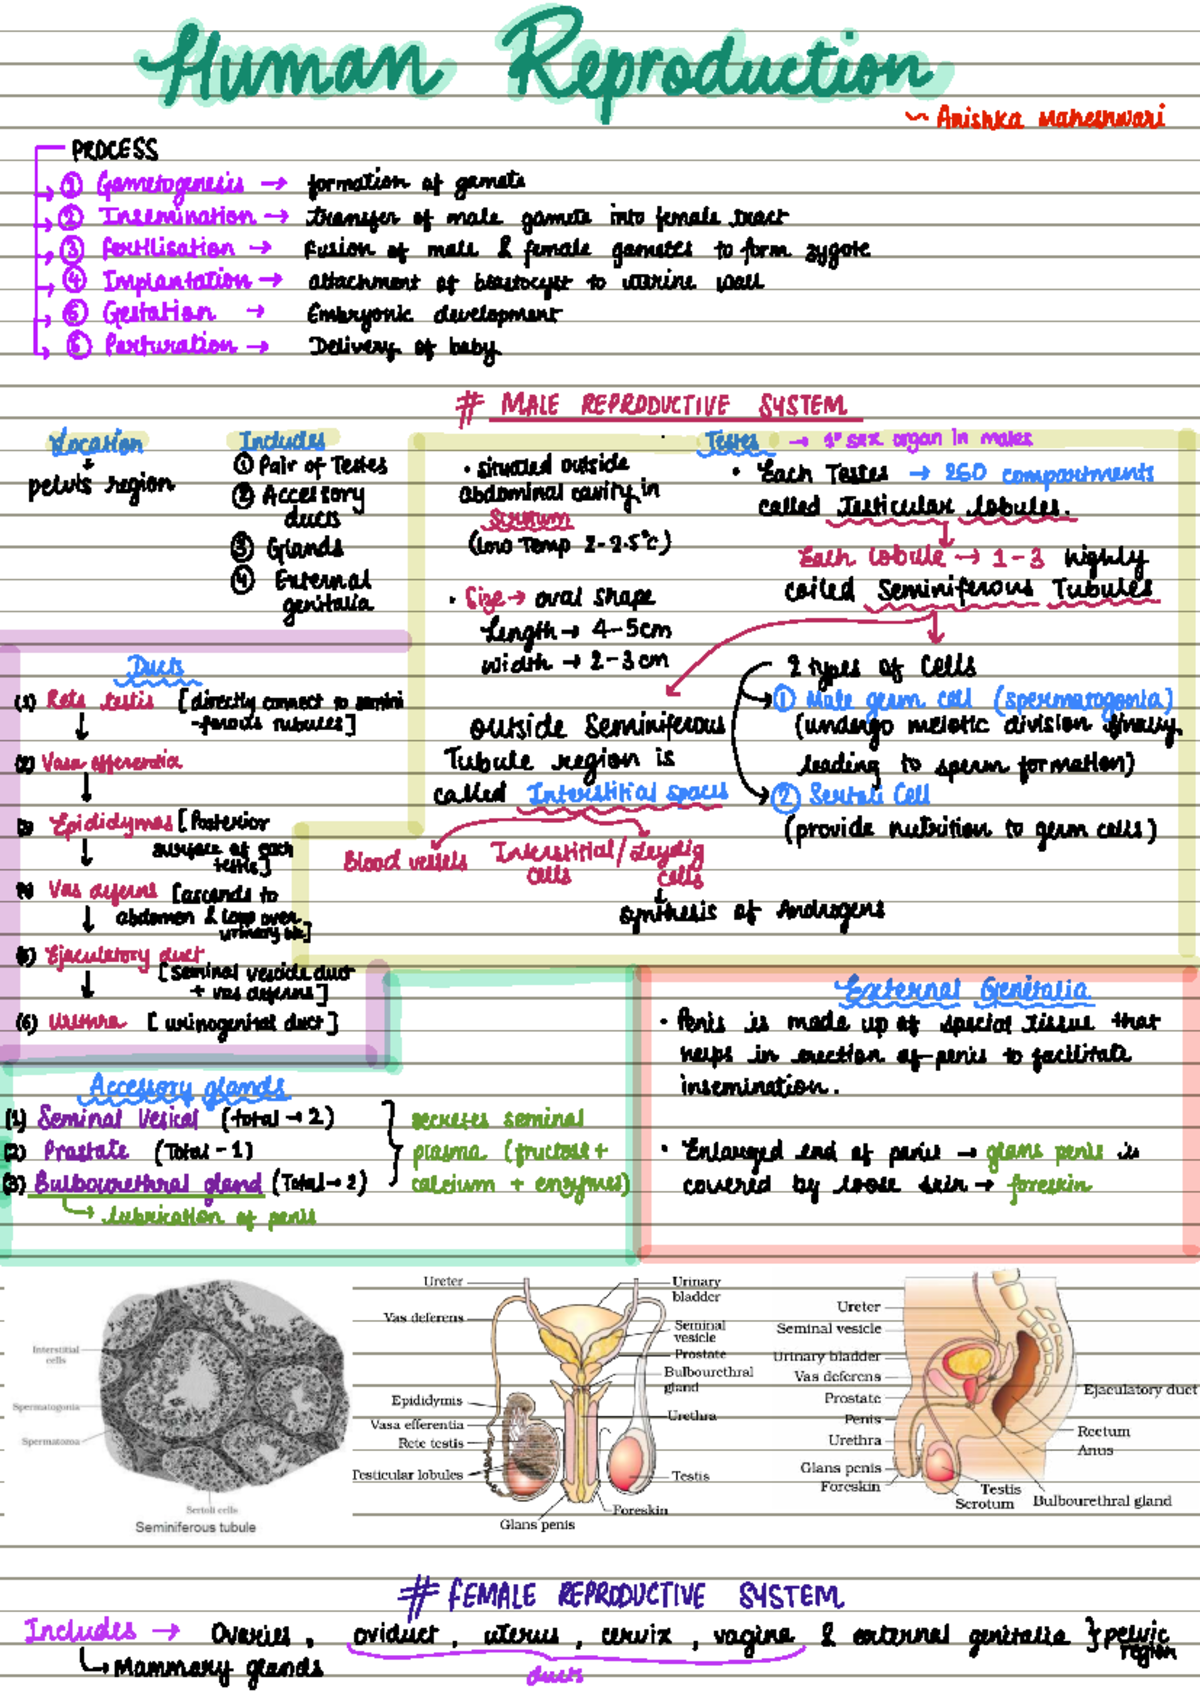 Human Reproduction
~ Anishka Maheshwari
PROCESS
① Gametogenesis → formation of gamete
② Insemination → transfer of male gamete into female tract
③ fertilisation → Fusion of male & female gametes to form zygote
④ Implantation → attachment of blastocyst to uterine wall
⑤ Gestation → Embryonic development
⑥ Parturation → Delivery of baby
# MALE REPRODUCTIVE SYSTEM
Location
pelvis region
Includes
① Pair of Testes
② Accessory
ducts
③ Glands
④ External
genitalia
Testes → 1° sex organ in males
• situated outside
abdominal cavity in
Scrotum
(low Temp 2-2.5°C)
• Size → oval shape
Length → 4-5cm
width → 2-3cm
• Each Testes → 250 compartments
called Testicular lobules.
Each lobule → 1-3 highly
coiled Seminiferous Tubules
2 types of cells
① Male germ cell (spermatogonia)
(undergo meiotic division finally
leading to sperm formation)
② Sertoli Cell
(provide nutrition to germ cells)
outside Seminiferous
Tubule region is
called Interstitial spaces
Blood vessels
Interstitial/Leydig
cells cells
synthesis of Androgens
Ducts
(1) Rete testis [directly connect to semini
-ferous tubules]
(2) Vasa efferentia
(3) Epididymas [Posterior
surface of each
testis]
(4) Vas deferns [ascends to
abdomen & loop over
urinary bl.]
(5) Ejaculatory duct
[Seminal vesicle duct
+ vas deferns]
(6) Urethra [urinogenital duct]
Accessory glands
(1) Seminal Vesical (total → 2)
(2) Prostate (Total - 1)
(3) Bulbourethral gland (Total → 2)
lubrication of penis
secretes seminal
plasma (fructose +
calcium + enzymes)
External Genitalia
• Penis is made up of special tissue that
helps in erection of penis to facilitate
insemination.
• Enlarged end of penis → glans penis is
covered by loose skin → foreskin
Interstitial
cells
Spermatogonia
Spermatozoa
Sertoli cells
Seminiferous tubule
Ureter
Vas deferens
Epididymis
Vasa efferentia
Rete testis
Testicular lobules
Glans penis
Urinary
bladder
Seminal
vesicle
Prostate
Bulbourethral
gland
Urethra
Testis
Foreskin
Ureter
Seminal vesicle
Urinary bladder
Vas deferens
Prostate
Penis
Urethra
Glans penis
Foreskin
Ejaculatory duct
Rectum
Anus
Testis
Scrotum
Bulbourethral gland
# FEMALE REPRODUCTIVE SYSTEM
Includes → Ovaries, oviduct, uterus, cervix, vagina & external genitalia } pelvic
region
Mammary glands
ducts